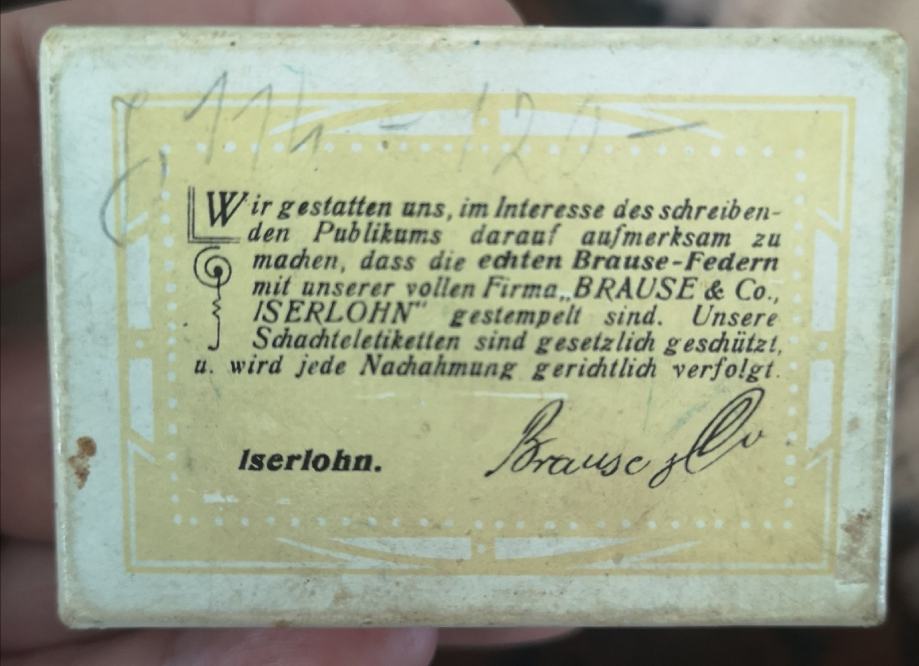 114 - 120 -
Wir gestatten uns, im Interesse des schreiben-
den Publikums darauf aufmerksam zu
machen, dass die echten Brause-Federn
mit unserer vollen Firma „BRAUSE & Co.,
ISERLOHN" gestempelt sind. Unsere
Schachteletiketten sind gesetzlich geschützt,
u. wird jede Nachahmung gerichtlich verfolgt.
Iserlohn. Brause & Co